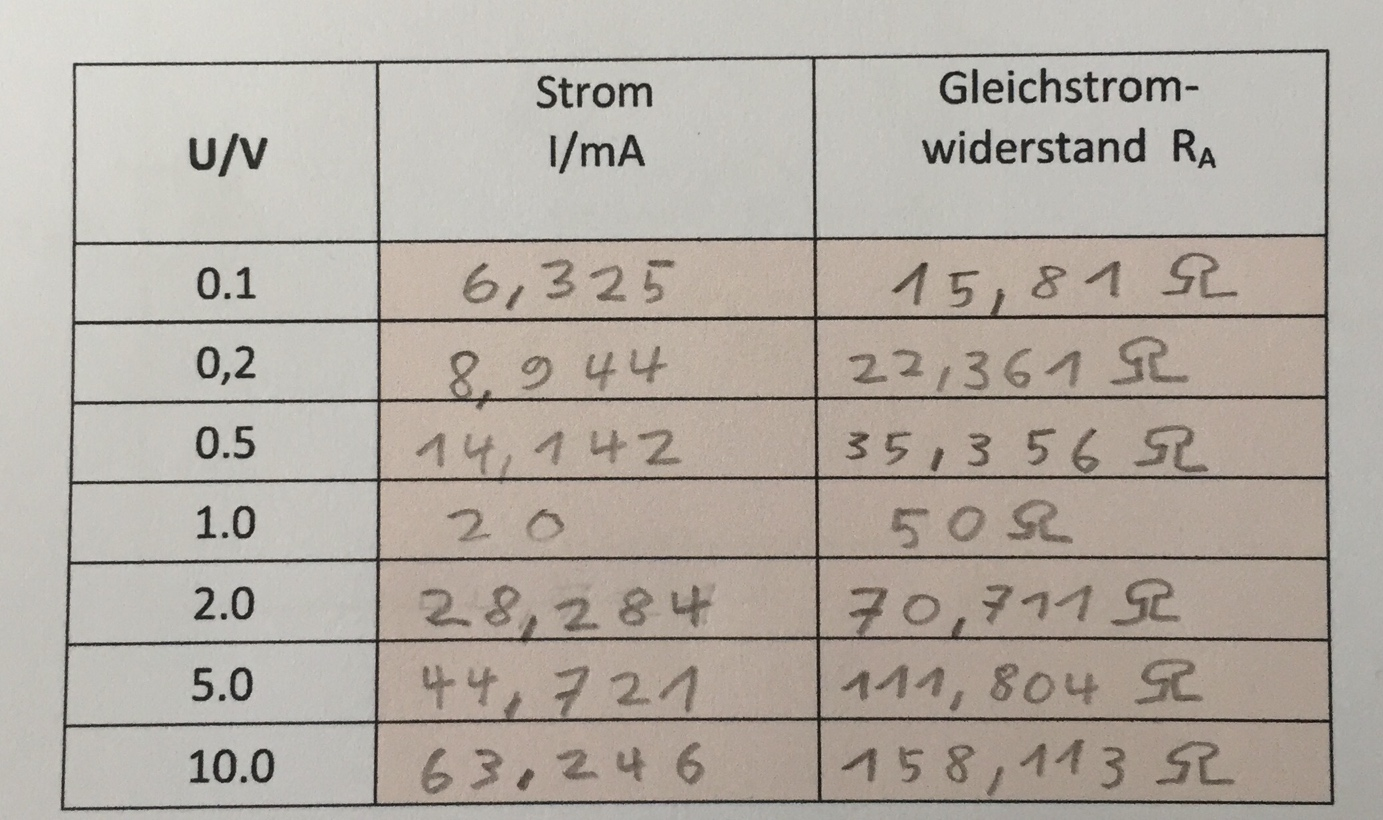 U/V Strom I/mA Gleichstrom-widerstand R_A
0.1 6,325 15,81 Ω
0,2 8,944 22,361 Ω
0.5 14,142 35,356 Ω
1.0 20 50 Ω
2.0 28,284 70,711 Ω
5.0 44,721 111,804 Ω
10.0 63,246 158,113 Ω